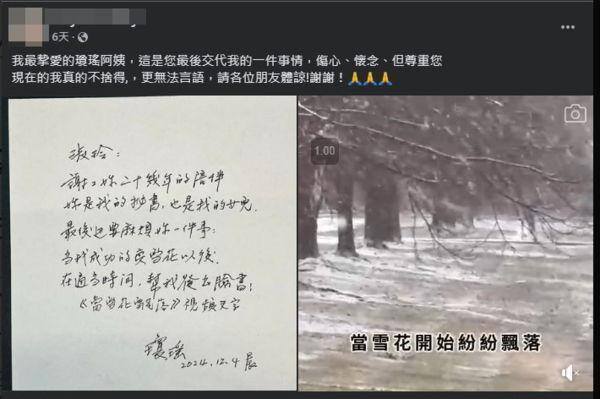 6天
我最摯愛的瓊瑤阿姨，這是您最後交代我的一件事情，傷心、懷念、但尊重您
現在的我真的不捨得，，更無法言語，請各位朋友體諒!謝謝！🙏🙏🙏
淑玲：
謝謝妳二十幾年的陪伴
妳是我的秘書，也是我的女兒
最後還要麻煩妳一件事：
當我成功的變雪花以後
在適當時間，幫我發公臉書：
《當雪花飄落》視頻文字
瓊瑤
2024.12.4晨
1.00
當雪花開始紛紛飄落